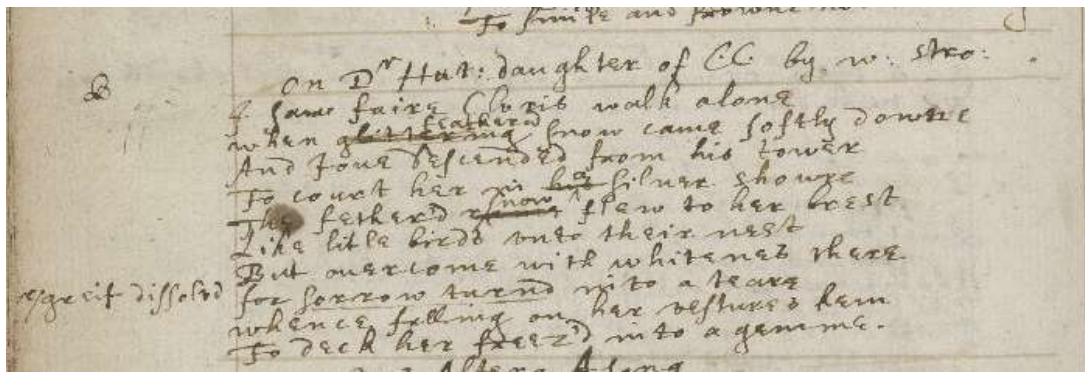 To smile and frowne
On Dr Hut: daughter of C.C. by w: stro:
I saw faire Cloris walk alone
when glittering featherd snow came softly downe
And Iove descended from his tower
To court her in his a silver showre
The fether'd snow flew to her brest
Like litle birds unto their nest
But overcome with whitenes there
greif dissolvd for sorrow turnd into a teare
whence falling on her vestures hem
To deck her freez'd into a gemme.
Altera A song